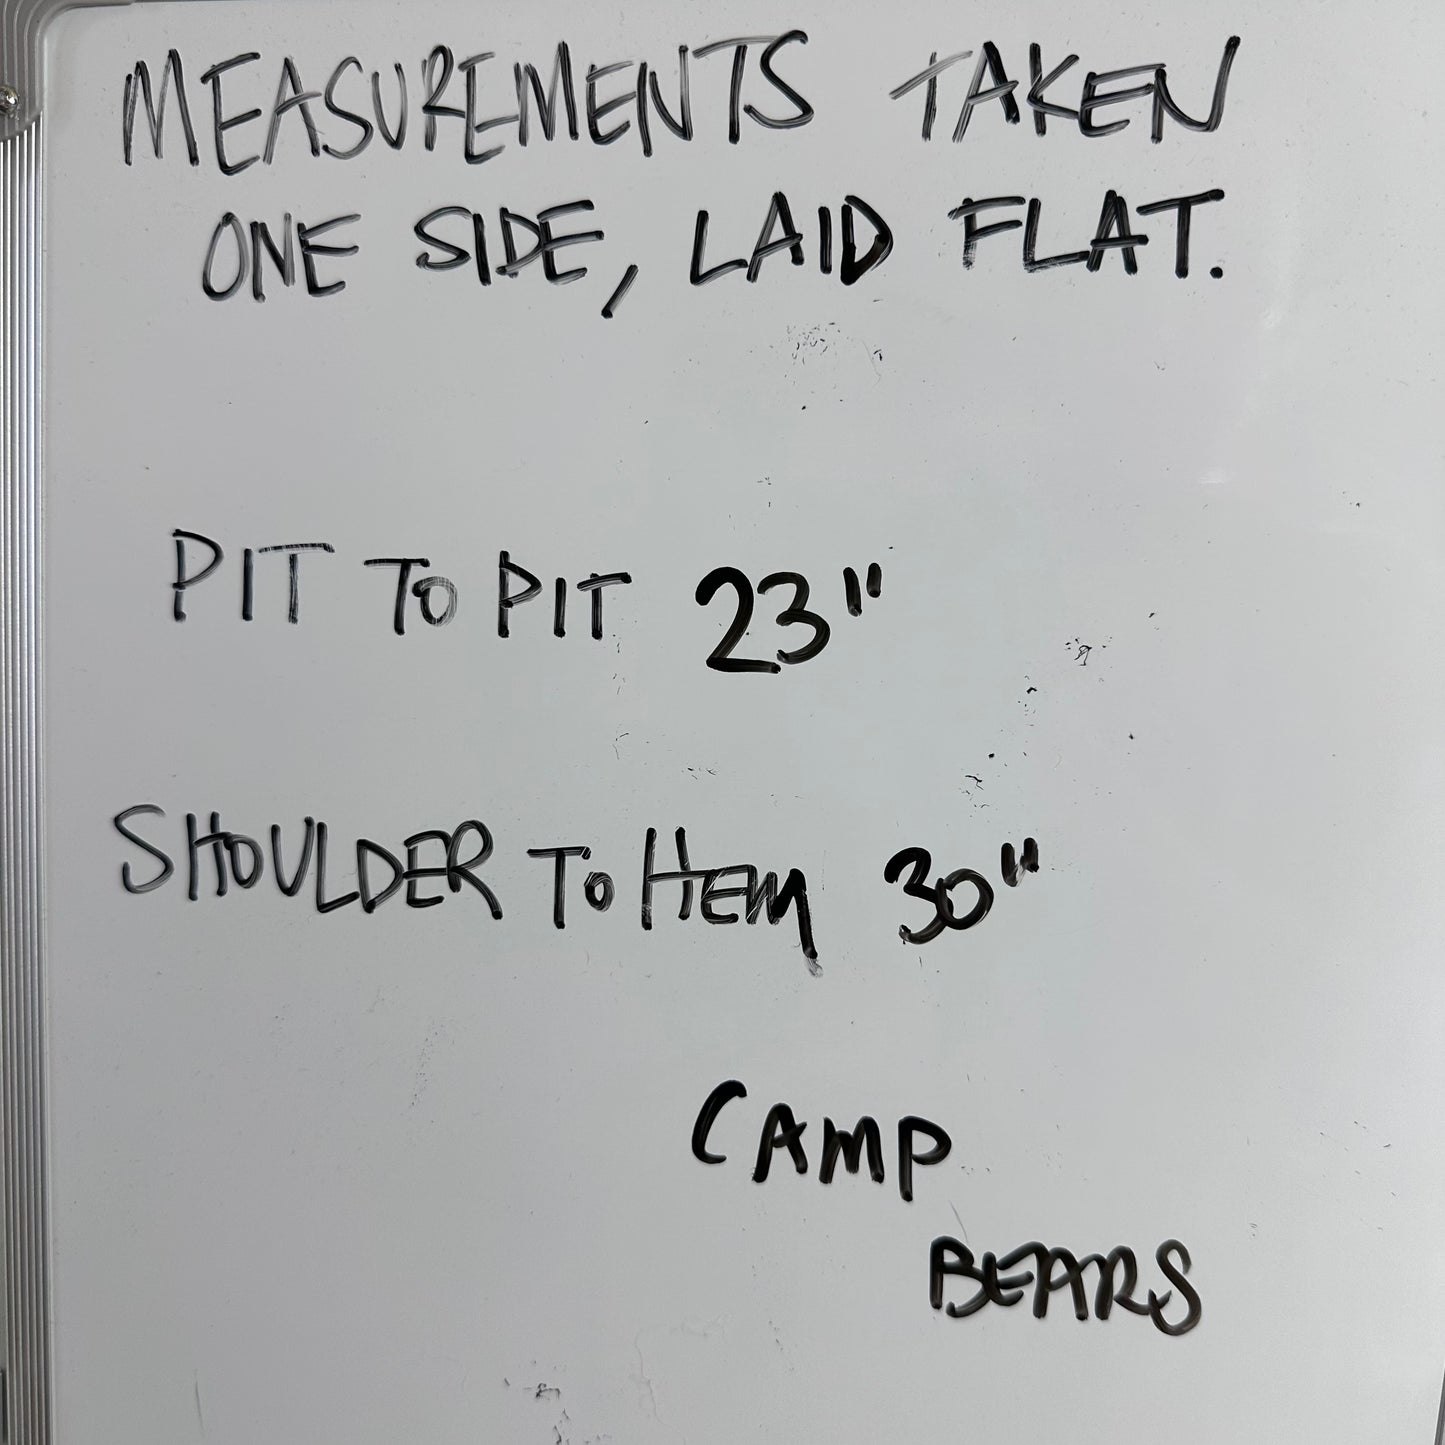 MEASUREMENTS TAKEN
ONE SIDE, LAID FLAT.
PIT TO PIT 23"
SHOULDER TO HEM 30"
CAMP
BEARS